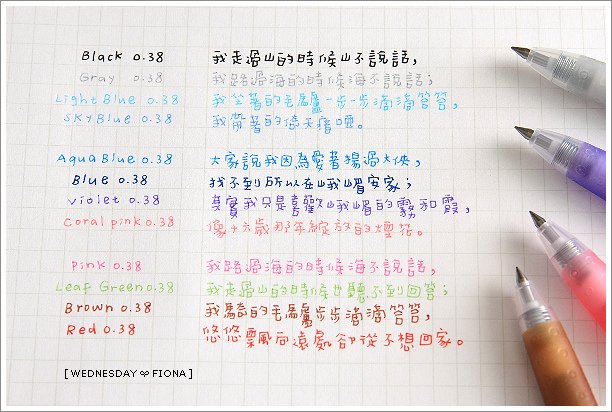 Black 0.38 我走過山的時候山不說話,
Gray 0.38 我路過海的時候海不說話;
Light Blue 0.38 我坐著的毛驢一步一步滴滴答答,
Sky Blue 0.38 我帶著的倚天喑啞。
Aqua Blue 0.38 大家說我因為愛著楊過大俠,
Blue 0.38 找不到所以在峨嵋安家;
violet 0.38 其實我只是喜歡峨嵋的霧和霞,
Coral pink 0.38 像十六歲那年綻放的煙花。
Pink 0.38 我路過海的時候海不說話,
Leaf Green 0.38 我走過山的時候也聽不到回答;
Brown 0.38 我騎的毛驢步步滴滴答答,
Red 0.38 悠悠飄向遠處卻從不想回家。
[ WEDNESDAY FIONA ]